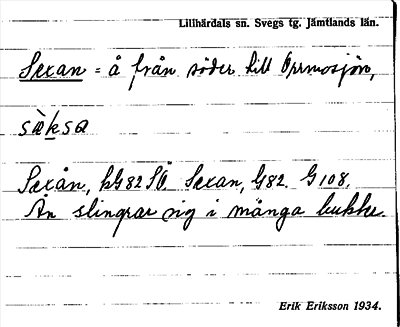 Lillhärdals sn. Svegs tg. Jämtlands län.
Sexan = å från söder till Öprmosjön,
sæ̀ksa
Sexån, kG82SÖ. Sexan, G82. G108.
Ån slingrar sig i många bukter.
Erik Eriksson 1934.